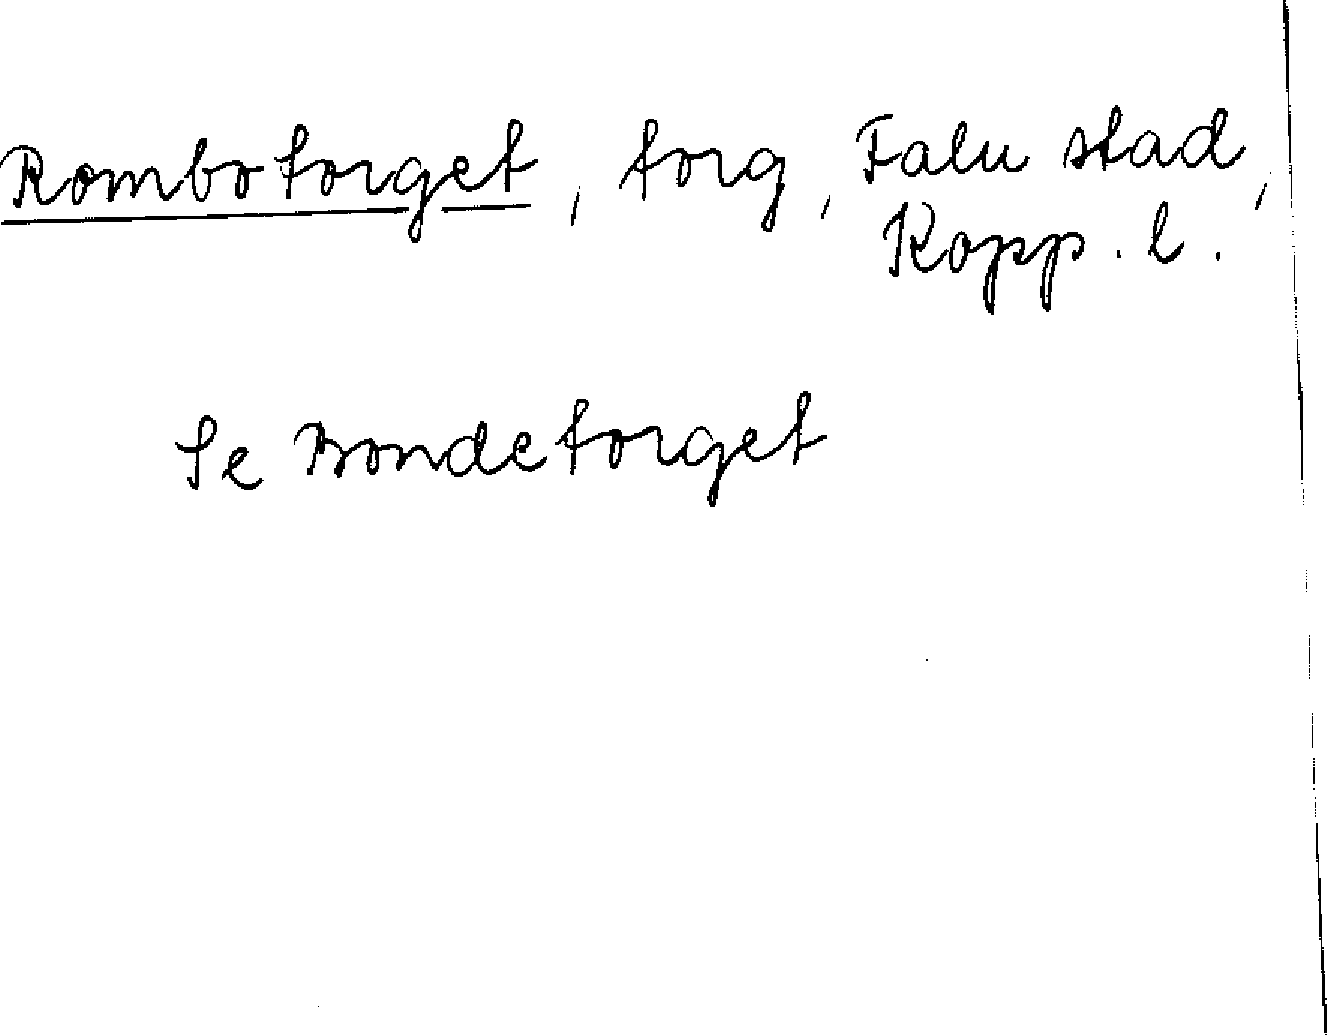 Rombotorget, torg, Falu stad,
Kopp. l.
Se Bondetorget